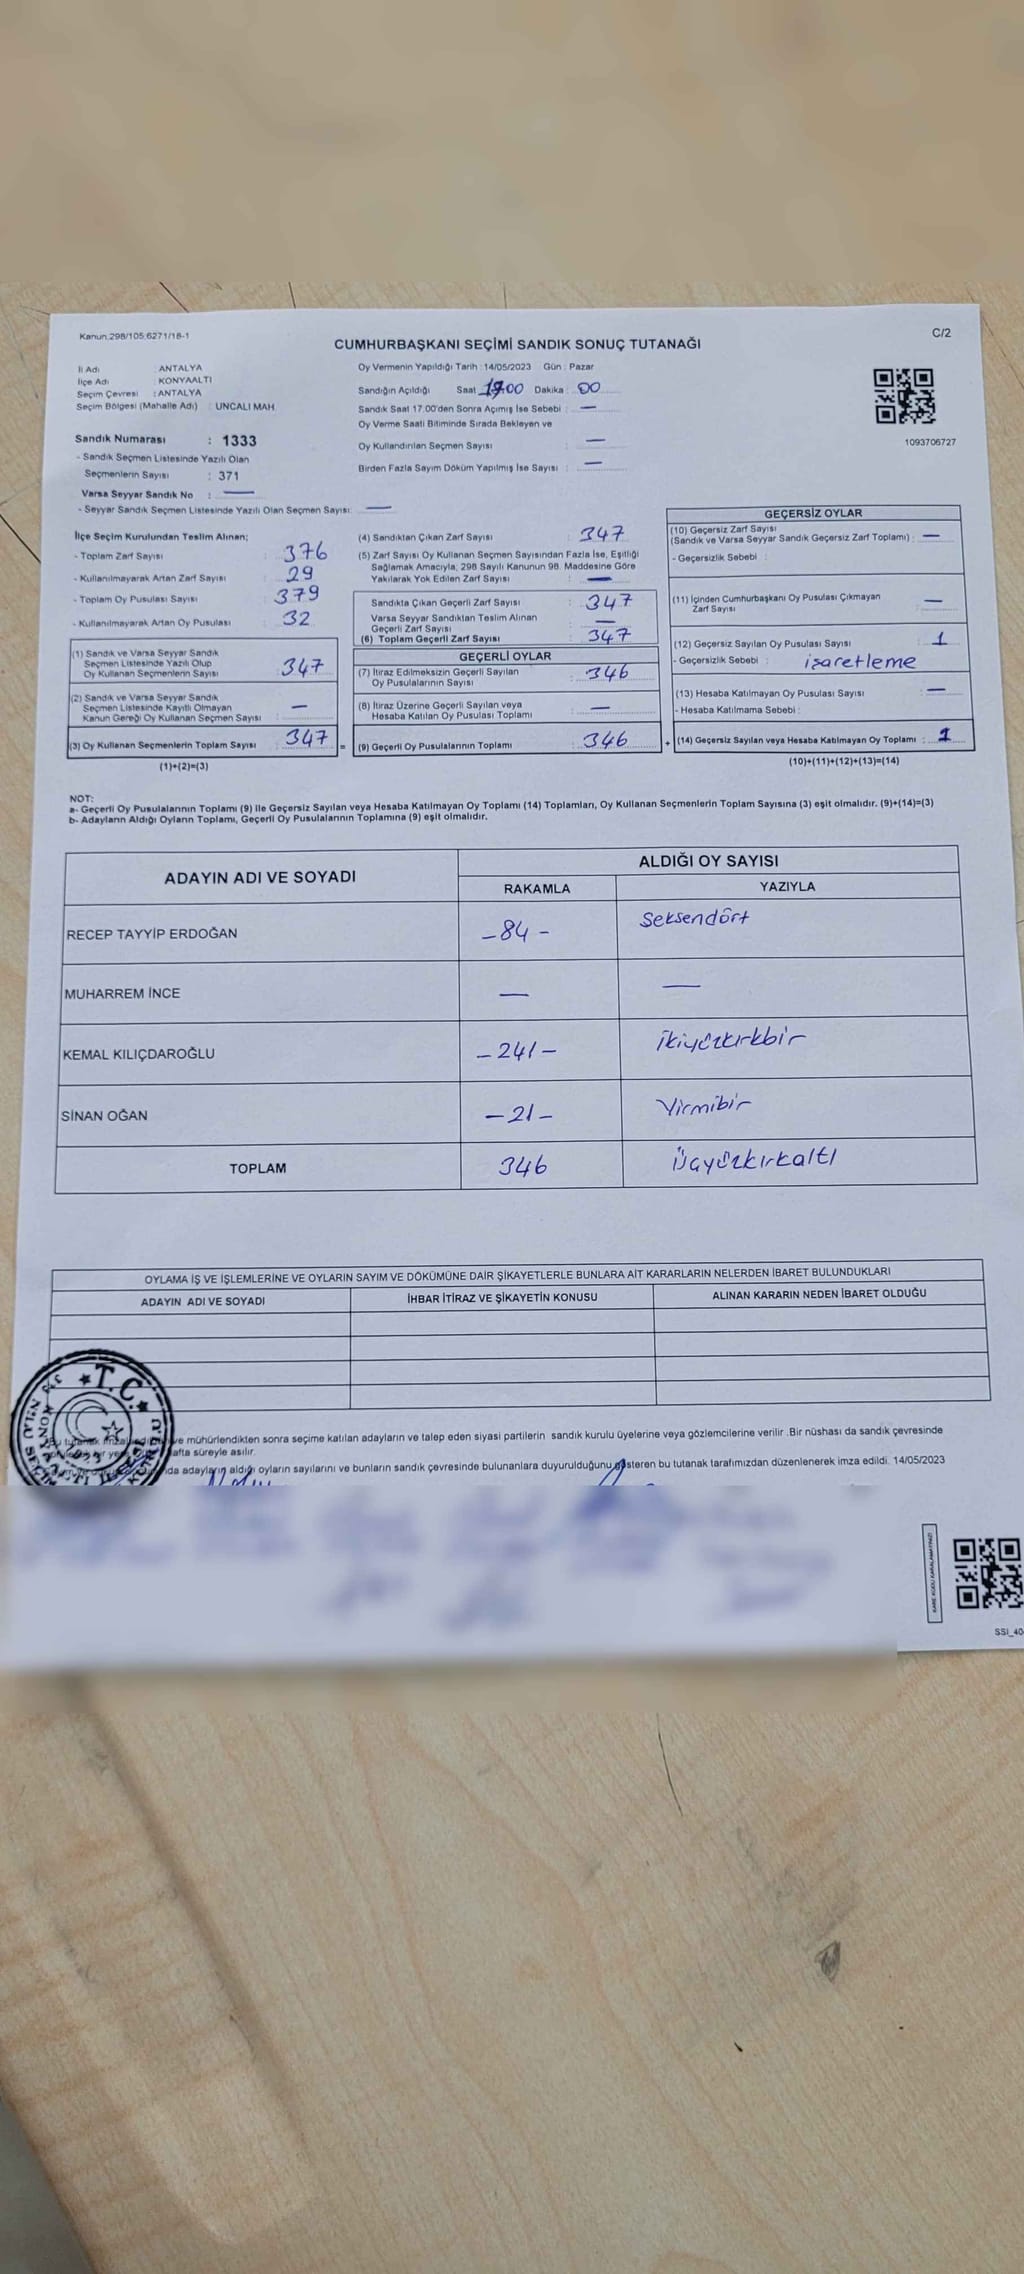 Kanun.298/105,6271/18-1
C/2
CUMHURBAŞKANI SEÇİMİ SANDIK SONUÇ TUTANAĞI
İl Adı : ANTALYA
İlçe Adı : KONYAALTI
Seçim Çevresi : ANTALYA
Seçim Bölgesi (Mahalle Adı) : UNCALI MAH.
Oy Vermenin Yapıldığı Tarih : 14/05/2023 Gün : Pazar
Sandığın Açıldığı Saat 17.00 Dakika : 00
Sandık Saat 17.00'den Sonra Açımış İse Sebebi : —
Oy Verme Saati Bitiminde Sırada Bekleyen ve
Oy Kullandırılan Seçmen Sayısı : —
Birden Fazla Sayım Döküm Yapılmış İse Sayısı : —
1093706727
Sandık Numarası : 1333
- Sandık Seçmen Listesinde Yazılı Olan
Seçmenlerin Sayısı : 371
Varsa Seyyar Sandık No : —
- Seyyar Sandık Seçmen Listesinde Yazılı Olan Seçmen Sayısı: —
İlçe Seçim Kurulundan Teslim Alınan;
- Toplam Zarf Sayısı : 376
- Kullanılmayarak Artan Zarf Sayısı : 29
- Toplam Oy Pusulası Sayısı : 379
- Kullanılmayarak Artan Oy Pusulası : 32
(1) Sandık ve Varsa Seyyar Sandık
Seçmen Listesinde Yazılı Olup
Oy Kullanan Seçmenlerin Sayısı : 347
(2) Sandık ve Varsa Seyyar Sandık
Seçmen Listesinde Kayıtlı Olmayan
Kanun Gereği Oy Kullanan Seçmen Sayısı : —
(3) Oy Kullanan Seçmenlerin Toplam Sayısı : 347 =
(1)+(2)=(3)
(4) Sandıktan Çıkan Zarf Sayısı : 347
(5) Zarf Sayısı Oy Kullanan Seçmen Sayısından Fazla İse, Eşitliği
Sağlamak Amacıyla; 298 Sayılı Kanunun 98. Maddesine Göre
Yakılarak Yok Edilen Zarf Sayısı : —
Sandıkta Çıkan Geçerli Zarf Sayısı : 347
Varsa Seyyar Sandıktan Teslim Alınan
Geçerli Zarf Sayısı : —
(6) Toplam Geçerli Zarf Sayısı : 347
GEÇERLİ OYLAR
(7) İtiraz Edilmeksizin Geçerli Sayılan
Oy Pusulalarının Sayısı : 346
(8) İtiraz Üzerine Geçerli Sayılan veya
Hesaba Katılan Oy Pusulası Toplamı : —
(9) Geçerli Oy Pusulalarının Toplamı : 346 +
GEÇERSİZ OYLAR
(10) Geçersiz Zarf Sayısı
(Sandık ve Varsa Seyyar Sandık Geçersiz Zarf Toplamı) : —
- Geçersizlik Sebebi :
(11) İçinden Cumhurbaşkanı Oy Pusulası Çıkmayan
Zarf Sayısı : —
(12) Geçersiz Sayılan Oy Pusulası Sayısı : 1
- Geçersizlik Sebebi : işaretleme
(13) Hesaba Katılmayan Oy Pusulası Sayısı : —
- Hesaba Katılmama Sebebi :
(14) Geçersiz Sayılan veya Hesaba Katılmayan Oy Toplamı : 1
(10)+(11)+(12)+(13)=(14)
NOT:
a- Geçerli Oy Pusulalarının Toplamı (9) ile Geçersiz Sayılan veya Hesaba Katılmayan Oy Toplamı (14) Toplamları, Oy Kullanan Seçmenlerin Toplam Sayısına (3) eşit olmalıdır. (9)+(14)=(3)
b- Adayların Aldığı Oyların Toplamı, Geçerli Oy Pusulalarının Toplamına (9) eşit olmalıdır.
ADAYIN ADI VE SOYADI
ALDIĞI OY SAYISI
RAKAMLA YAZIYLA
RECEP TAYYİP ERDOĞAN -84- Seksendört
MUHARREM İNCE — —
KEMAL KILIÇDAROĞLU -241- İkiyüzkırkbir
SİNAN OĞAN -21- Yirmibir
TOPLAM 346 Üçyüzkırkaltı
OYLAMA İŞ VE İŞLEMLERİNE VE OYLARIN SAYIM VE DÖKÜMÜNE DAİR ŞİKAYETLERLE BUNLARA AİT KARARLARIN NELERDEN İBARET BULUNDUKLARI
ADAYIN ADI VE SOYADI İHBAR İTİRAZ VE ŞİKAYETİN KONUSU ALINAN KARARIN NEDEN İBARET OLDUĞU
T.C.
Bu tutanak ve mühürlendikten sonra seçime katılan adayların ve talep eden siyasi partilerin sandık kurulu üyelerine veya gözlemcilerine verilir .Bir nüshası da sandık çevresinde
hafta süreyle asılır.
adayların aldığı oyların sayılarını ve bunların sandık çevresinde bulunanlara duyurulduğunu gösteren bu tutanak tarafımızdan düzenlenerek imza edildi. 14/05/2023
KARE KODU KARALAMAYINIZ!
SSI_40